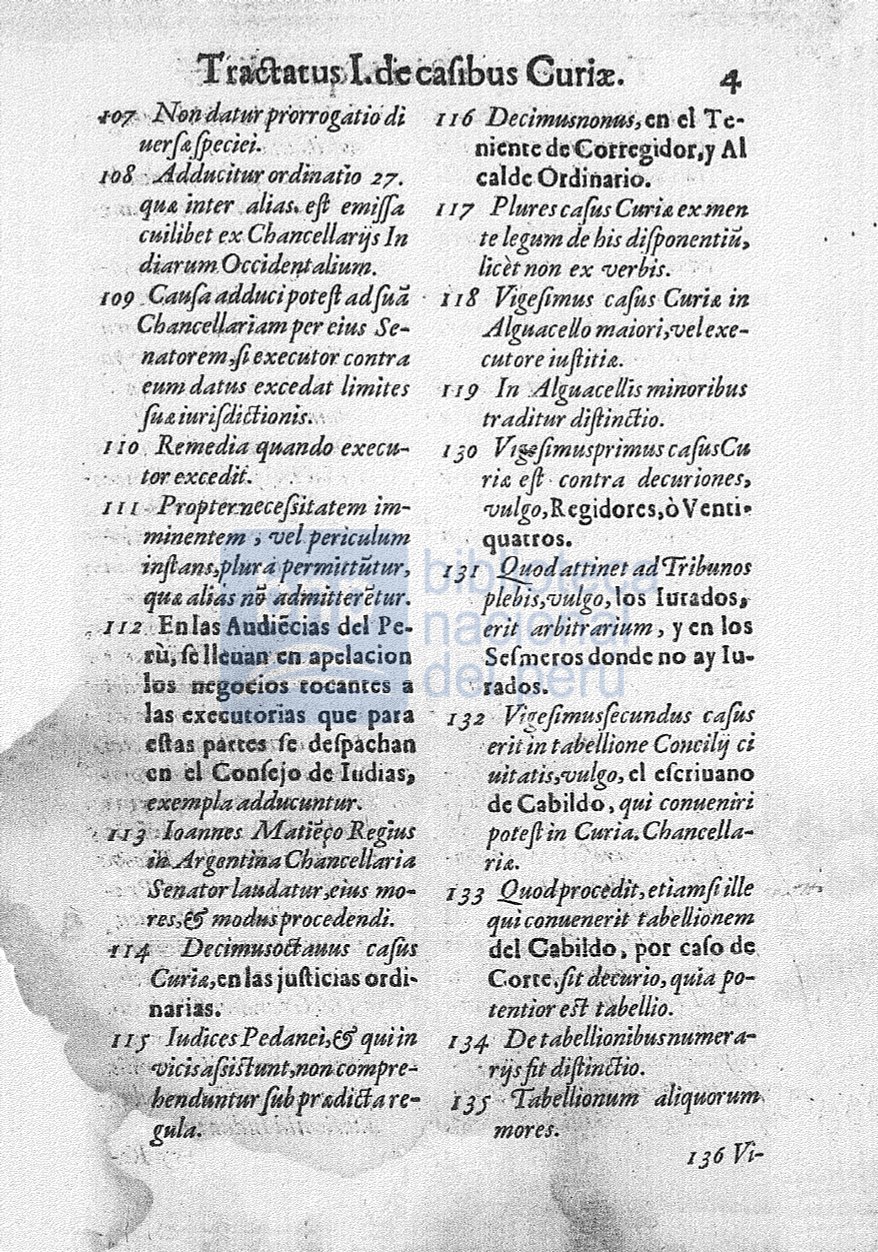 Tractatus I. de casibus Curiæ. 4
107 Non datur prorrogatio di
uersæ speciei.
108 Adducitur ordinatio 27.
quæ inter alias. est emissa
cuilibet ex Chancellarijs In
diarum Occidentalium.
109 Causa adduci potest ad suã
Chancellariam per eius Se-
natorem, si executor contra
eum datus excedat limites
suæ iurisdictionis.
110 Remedia quando execu-
tor excedit.
111 Propter necessitatem im-
minentem, vel periculum
instans, plura permittũtur,
quæ aliàs nõ admitterẽtur.
112 En las Audiẽcias del Pe-
rù, se lleuan en apelacion
los negocios tocantes a
las executorias que para
estas partes se despachan
en el Consejo de Indias,
exempla adducuntur.
113 Ioannes Matiẽço Regius
in Argentina Chancellaria
Senator laudatur, eius mo-
res, & modus procedendi.
114 Decimusoctauus casus
Curiæ, en las justicias ordi-
narias.
115 Iudices Pedanei, & qui in
vicis assistunt, non compre-
henduntur sub prædicta re-
gula.
116 Decimusnonus, en el Te-
niente de Corregidor, y Al
calde Ordinario.
117 Plures casus Curiæ ex men
te legum de his disponentiũ,
licèt non ex verbis.
118 Vigesimus casus Curiæ in
Alguacello maiori, vel exe-
cutore iustitiæ.
119 In Alguacellis minoribus
traditur distinctio.
130 Vigesimusprimus casus Cu
riæ est contra decuriones,
vulgo, Regidores, ò Venti-
quatros.
131 Quod attinet ad Tribunos
plebis, vulgo, los Iurados,
erit arbitrarium, y en los
Sesmeros donde no ay Iu-
rados.
132 Vigesimussecundus casus
erit in tabellione Concilij ci
uitatis, vulgo, el escriuano
de Cabildo, qui conueniri
potest in Curia. Chancella-
riæ.
133 Quod procedit, etiam si ille
qui conuenerit tabellionem
del Cabildo, por caso de
Corte, sit decurio, quia po-
tentior est tabellio.
134 De tabellionibus numera-
rijs fit distinctio.
135 Tabellionum aliquorum
mores.
136 Vi-
biblioteca
nacional
del perú